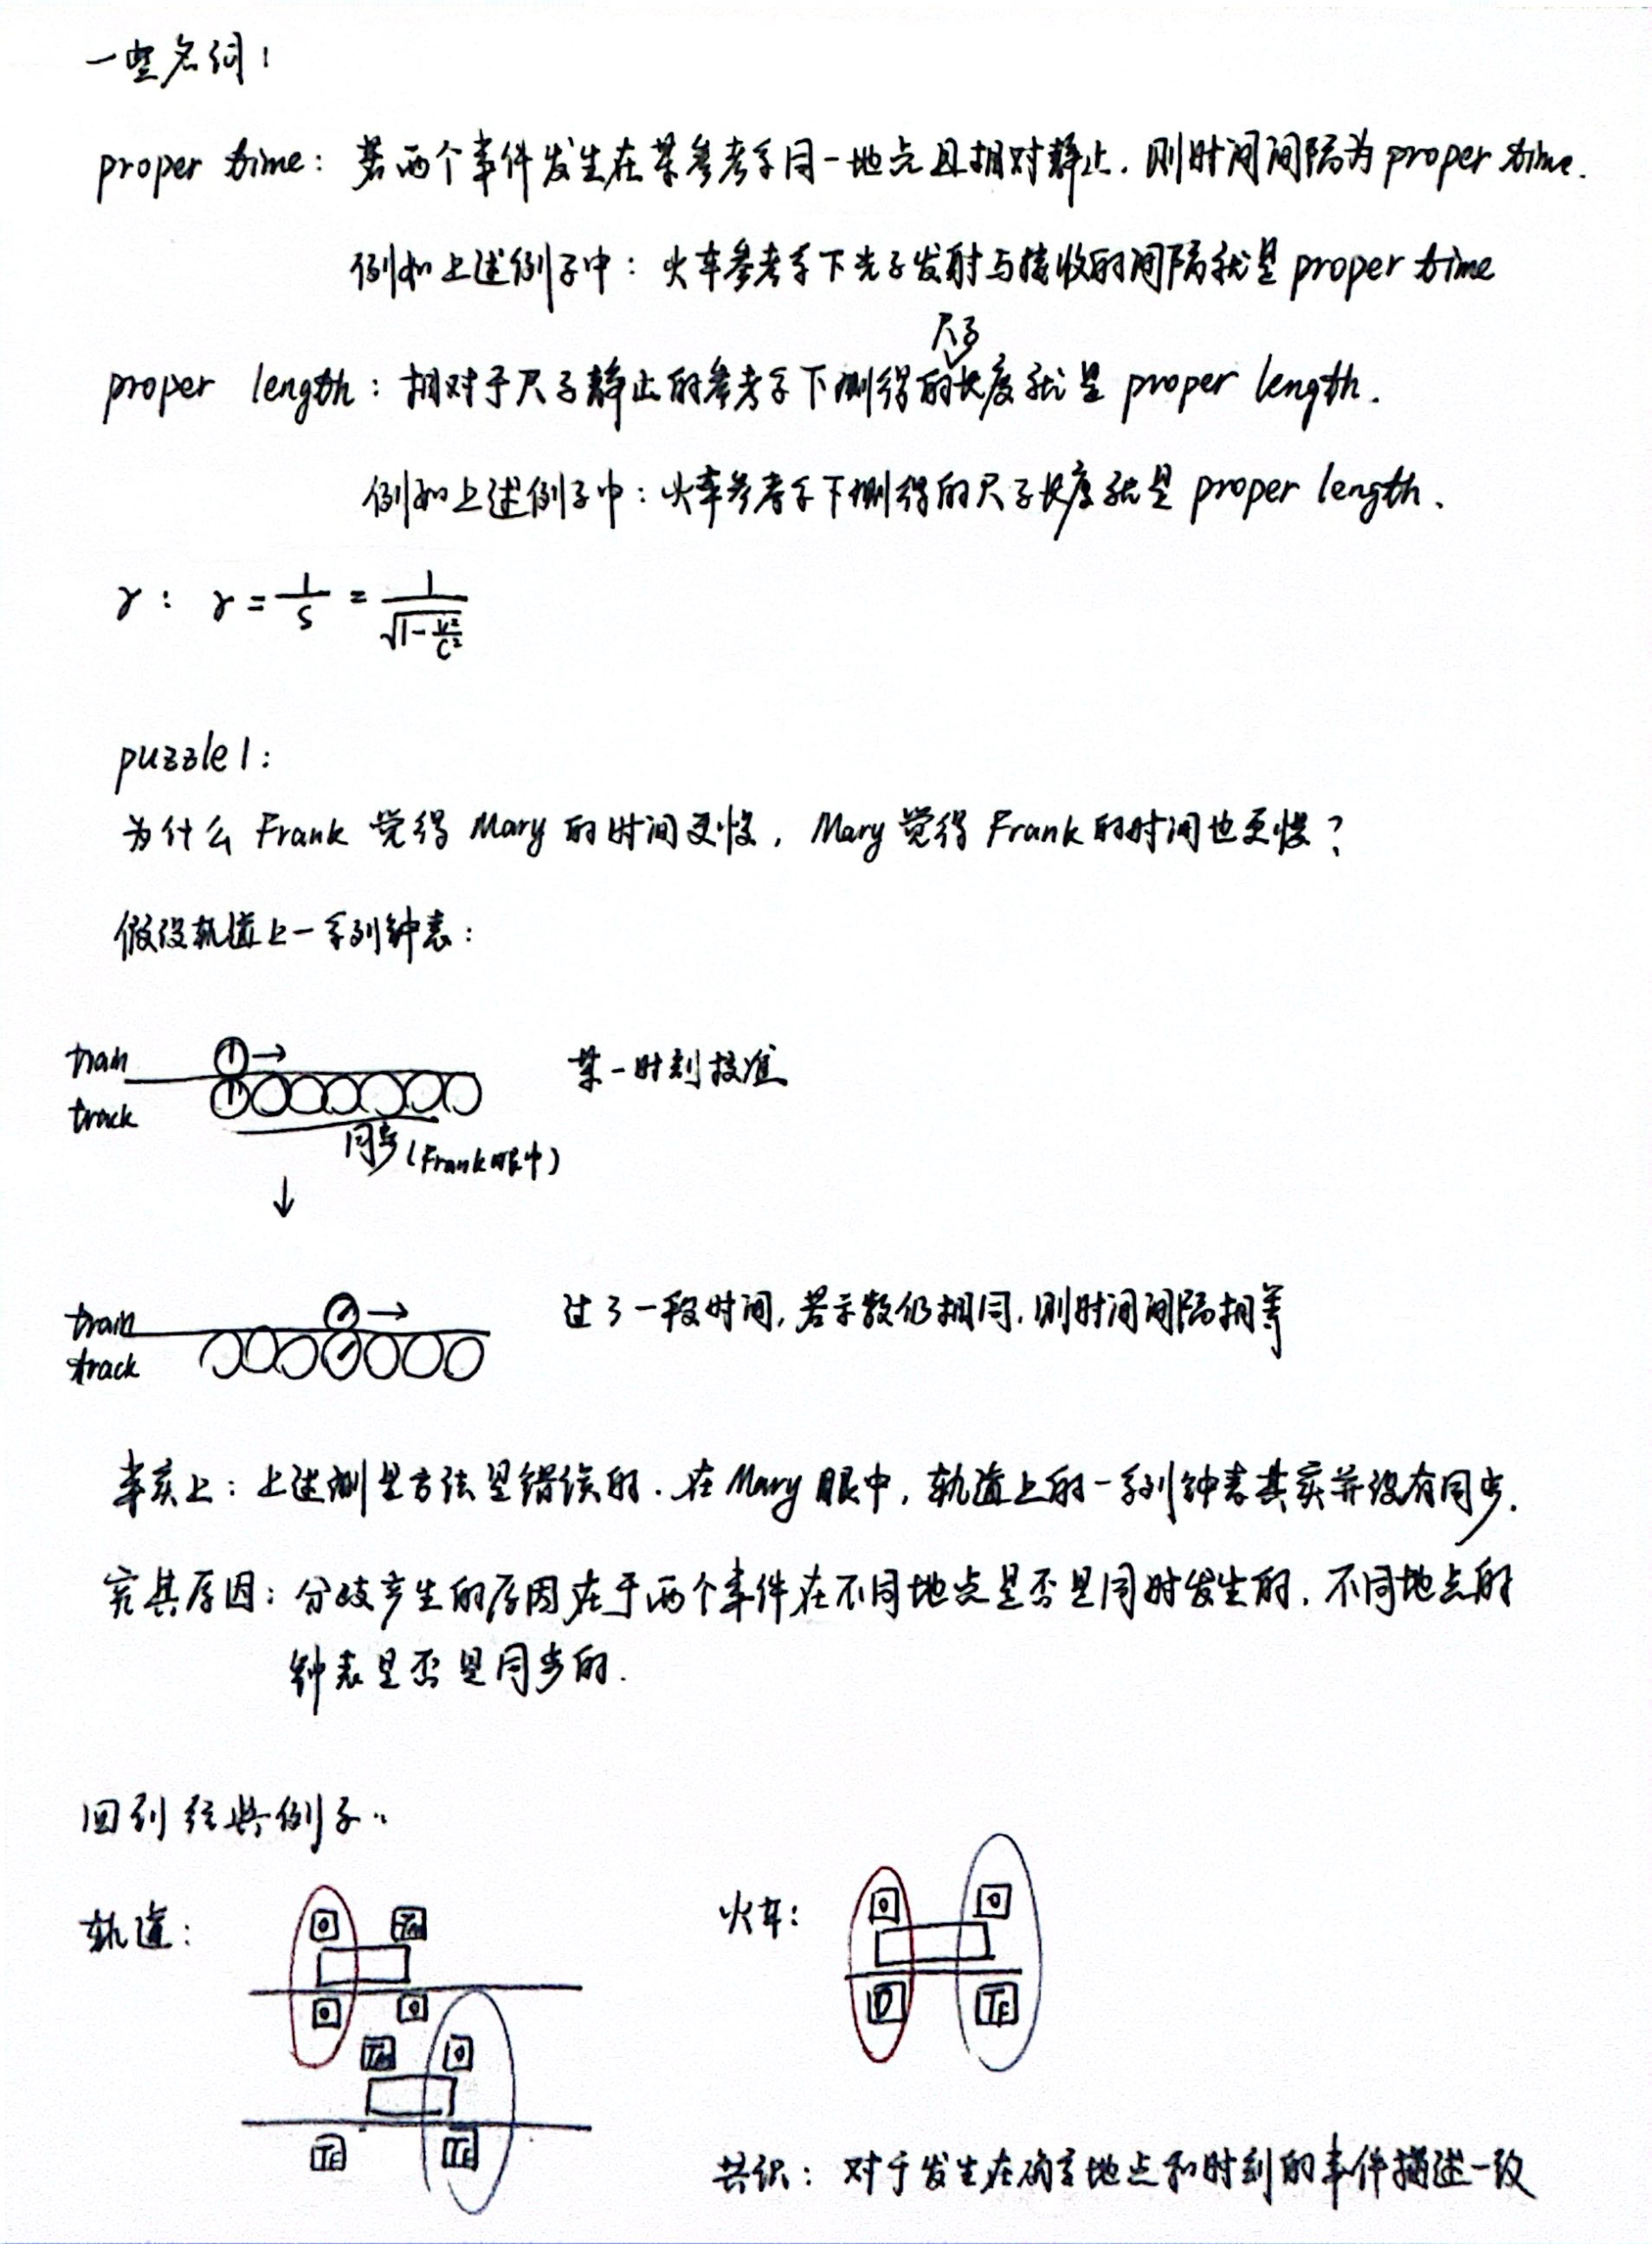 一些名词:
proper time: 若两个事件发生在某参考系同一地点且相对静止. 则时间间隔为 proper time.
例如上述例子中: 火车参考系下光子发射与接收的间隔就是 proper time
尺子
proper length: 相对于尺子静止的参考系下测得的长度就是 proper length.
例如上述例子中: 火车参考系下测得的尺子长度就是 proper length.
γ: γ = 1/s = 1/√(1-v²/c²)
puzzle 1:
为什么 Frank 觉得 Mary 的时间更慢, Mary 觉得 Frank 的时间也更慢?
假设轨道上一系列钟表:
train
某一时刻校准
track
同步 (Frank眼中)
↓
train
过了一段时间, 若示数仍相同, 则时间间隔相等
track
事实上: 上述测量方法是错误的. 在 Mary 眼中, 轨道上的一系列钟表其实并没有同步.
究其原因: 分歧产生的原因在于两个事件在不同地点是否是同时发生的, 不同地点的
钟表是否是同步的.
回到经典例子..
轨道:
0
0
0
0
TF
TF
火车:
0 0
0 TF
共识: 对于发生在确定地点和时刻的事件描述一致